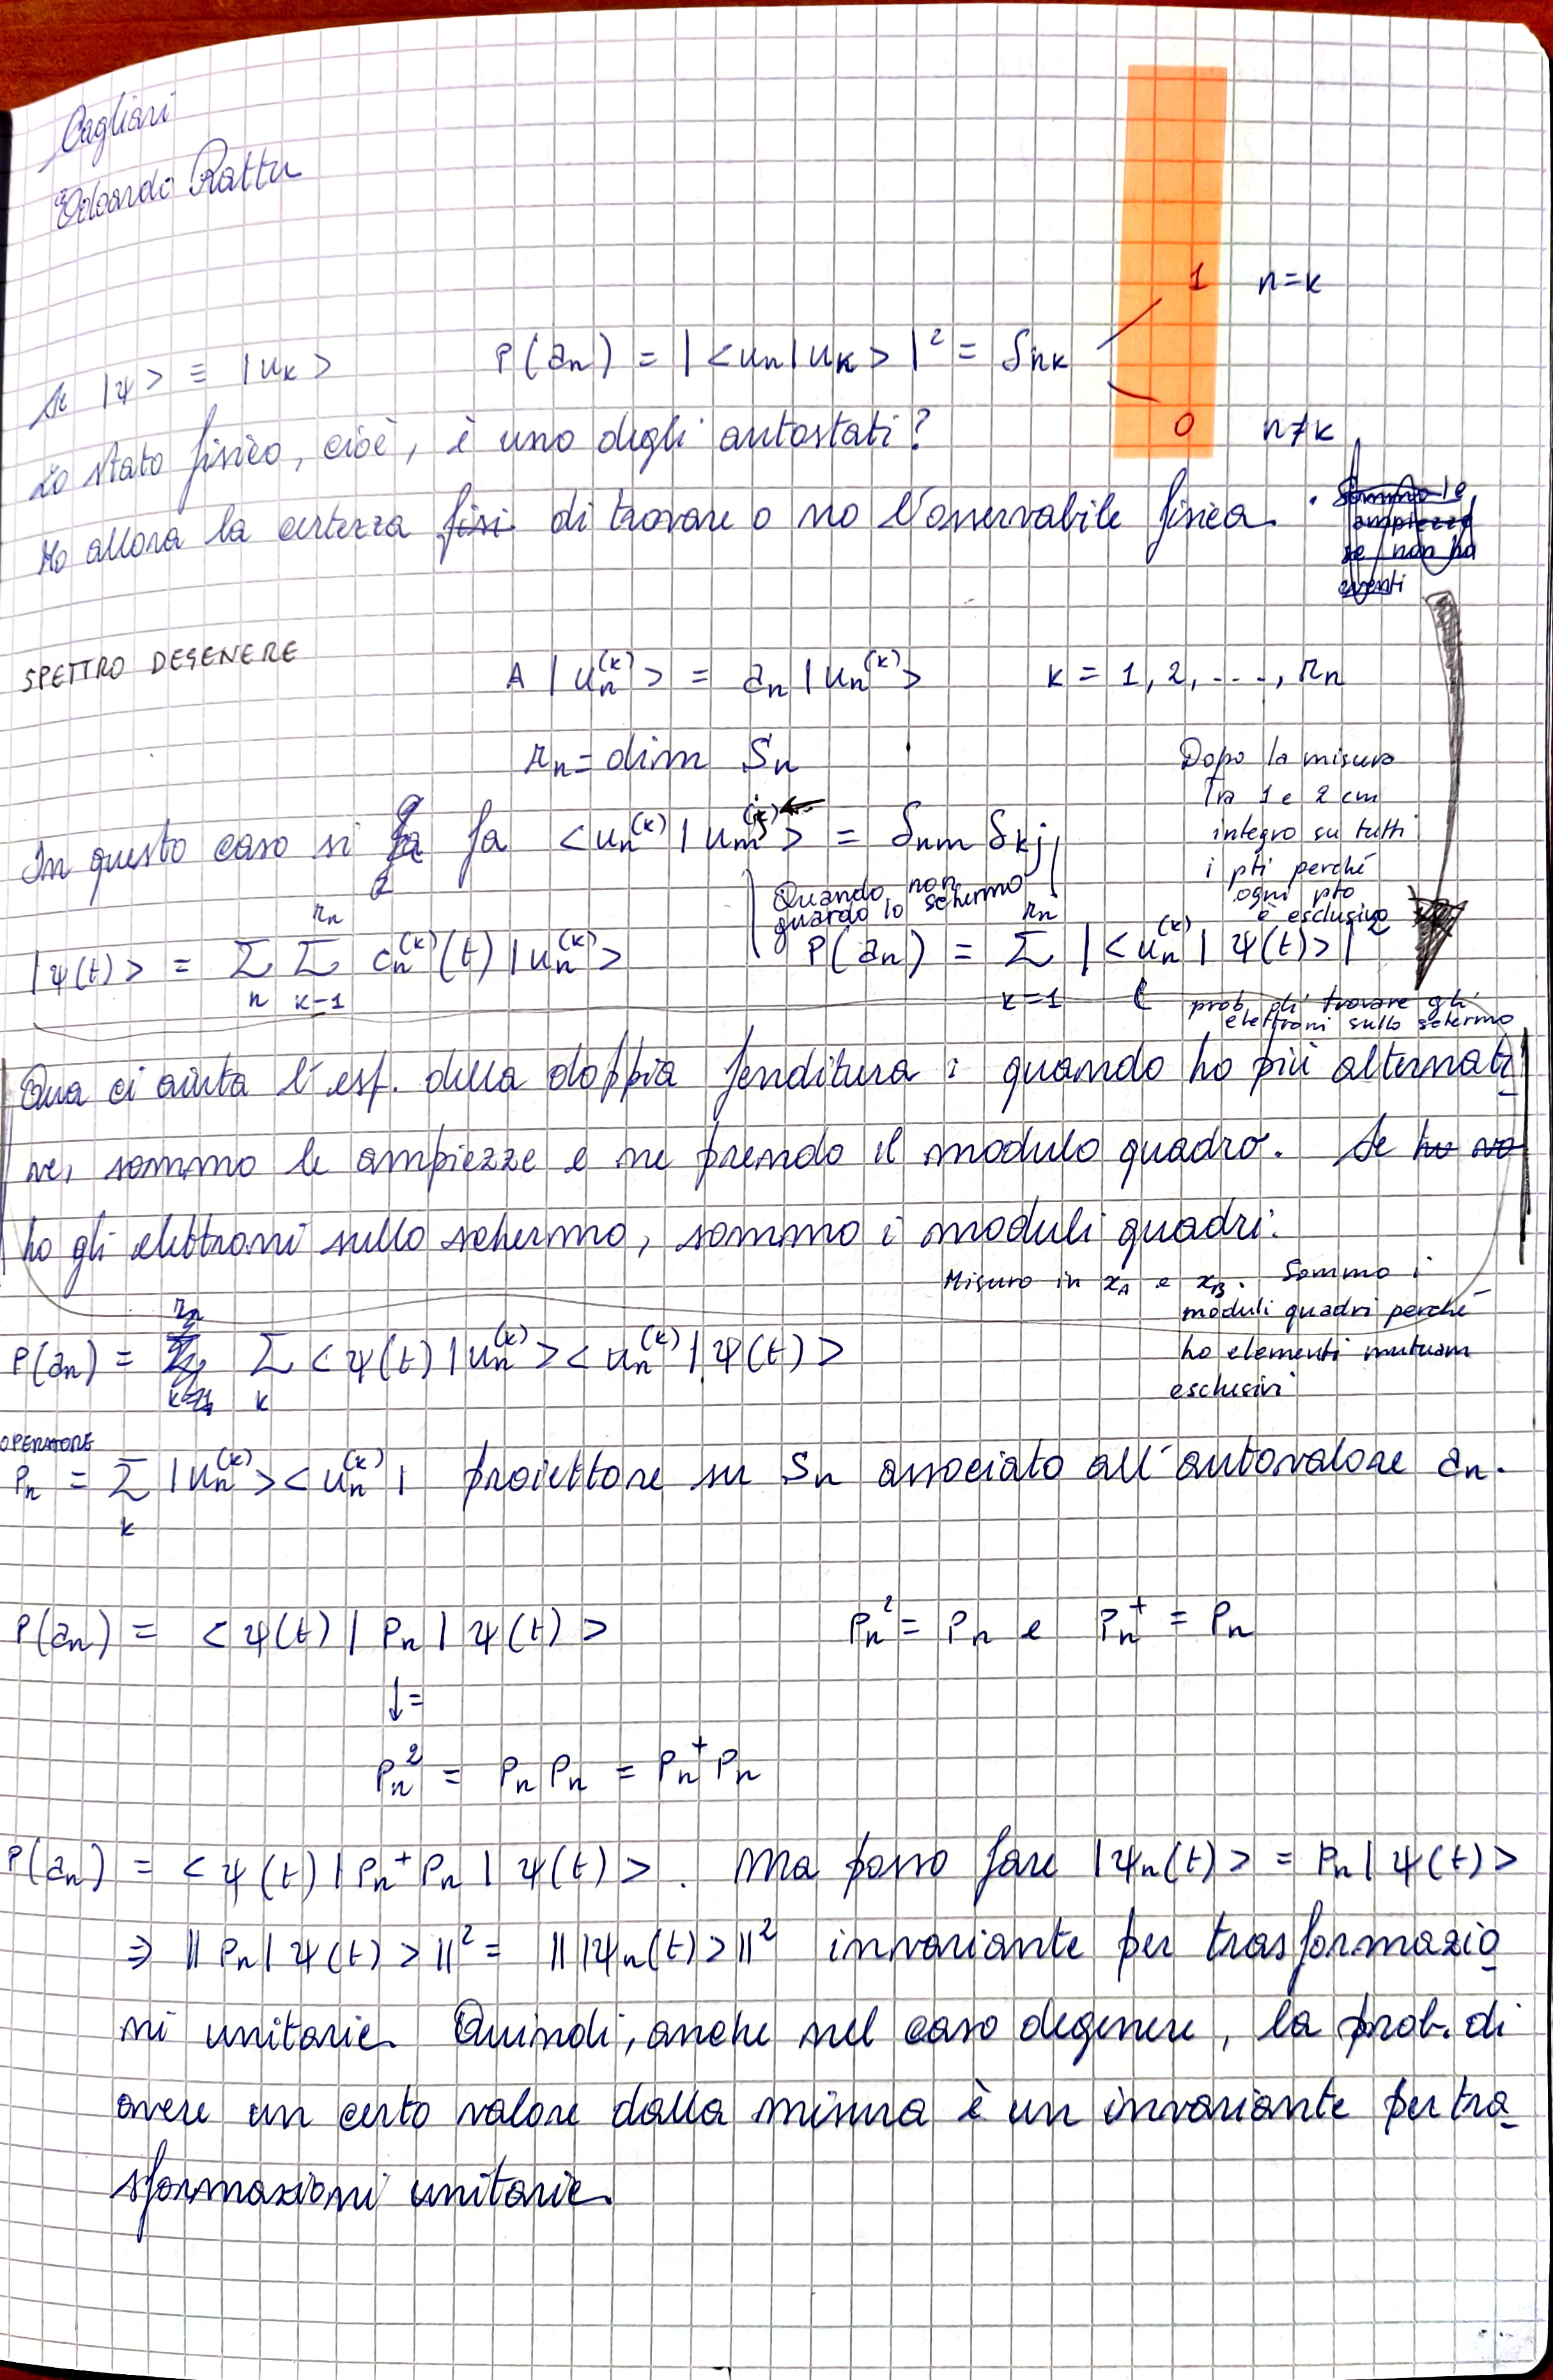 Cagliari
Edoardo Rattu
1 n=k
Se |ψ> ≡ |u_k> P(a_n) = |<u_n|u_k>|² = δ_nk
0 n≠k
Lo stato fisico, cioè, è uno degli autostati?
Ho allora la certezza fisi di trovare o no l'osservabile fisica.
Sommo le
ampiezze
se non ho
eventi
SPETTRO DEGENERE
A |u_n^(k)> = a_n |u_n^(k)> k = 1, 2, ...., r_n
r_n = dim S_n
Dopo la misura
Tra 1 e 2 cm
integro su tutti
i pti perché
ogni pto
è esclusivo
In questo caso si fa fa <u_n^(k)|u_m^(j)> = δ_nm δ_kj
Quando non
guardo lo schermo
|ψ(t)> = Σ_n Σ_{k=1}^{r_n} c_n^(k)(t) |u_n^(k)> P(a_n) = Σ_{k=1}^{r_n} |<u_n^(k)|ψ(t)>|²
prob. di trovare gli
elettroni sullo schermo
Qua ci aiuta l'esp. della doppia fenditura: quando ho più alternati
ve, sommo le ampiezze e ne prendo il modulo quadro. Se ho no
ho gli elettroni sullo schermo, sommo i moduli quadri.
Misuro in x_A e x_B. Sommo i
moduli quadri perché
ho elementi mutuam
esclusivi
P(a_n) = Σ_k <ψ(t)|u_n^(k)><u_n^(k)|ψ(t)>
OPERATORE
P_n = Σ_k |u_n^(k)><u_n^(k)| proiettore su S_n associato all'autovalore a_n.
P(a_n) = <ψ(t)|P_n|ψ(t)> P_n² = P_n e P_n^+ = P_n
↓=
P_n² = P_n P_n = P_n^+ P_n
P(a_n) = <ψ(t)|P_n^+ P_n|ψ(t)>. Ma posso fare |ψ_n(t)> = P_n|ψ(t)>
⇒ ||P_n|ψ(t)>||² = |||ψ_n(t)>||² invariante per trasformazio
ni unitarie. Quindi, anche nel caso degenere, la prob. di
avere un certo valore dalla misura è un invariante per tra
sformazioni unitarie.